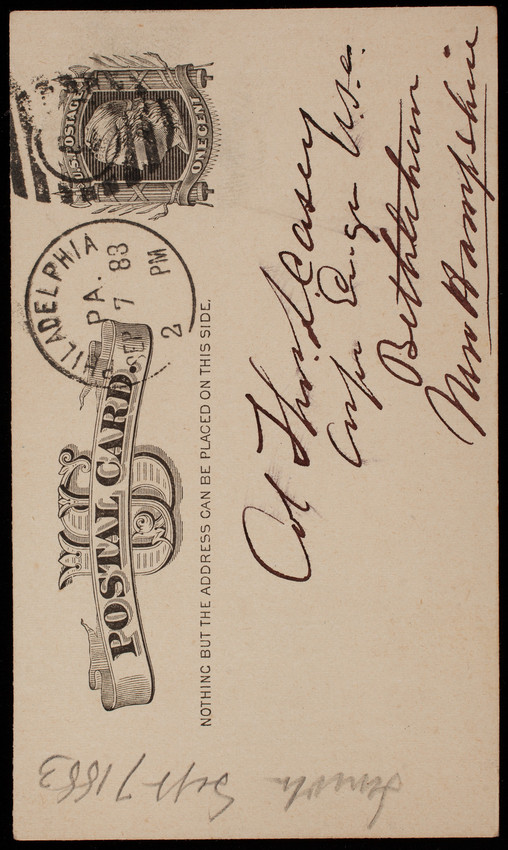 U.S. POSTAGE
ONE CENT
PHILADELPHIA PA.
SEP 7 83
2 PM
US
POSTAL CARD.
NOTHING BUT THE ADDRESS CAN BE PLACED ON THIS SIDE.
Col Thos. L. Casey
Corps Engrs U.S.A.
Bethlehem
New Hampshire
Smith Sept 7 1883